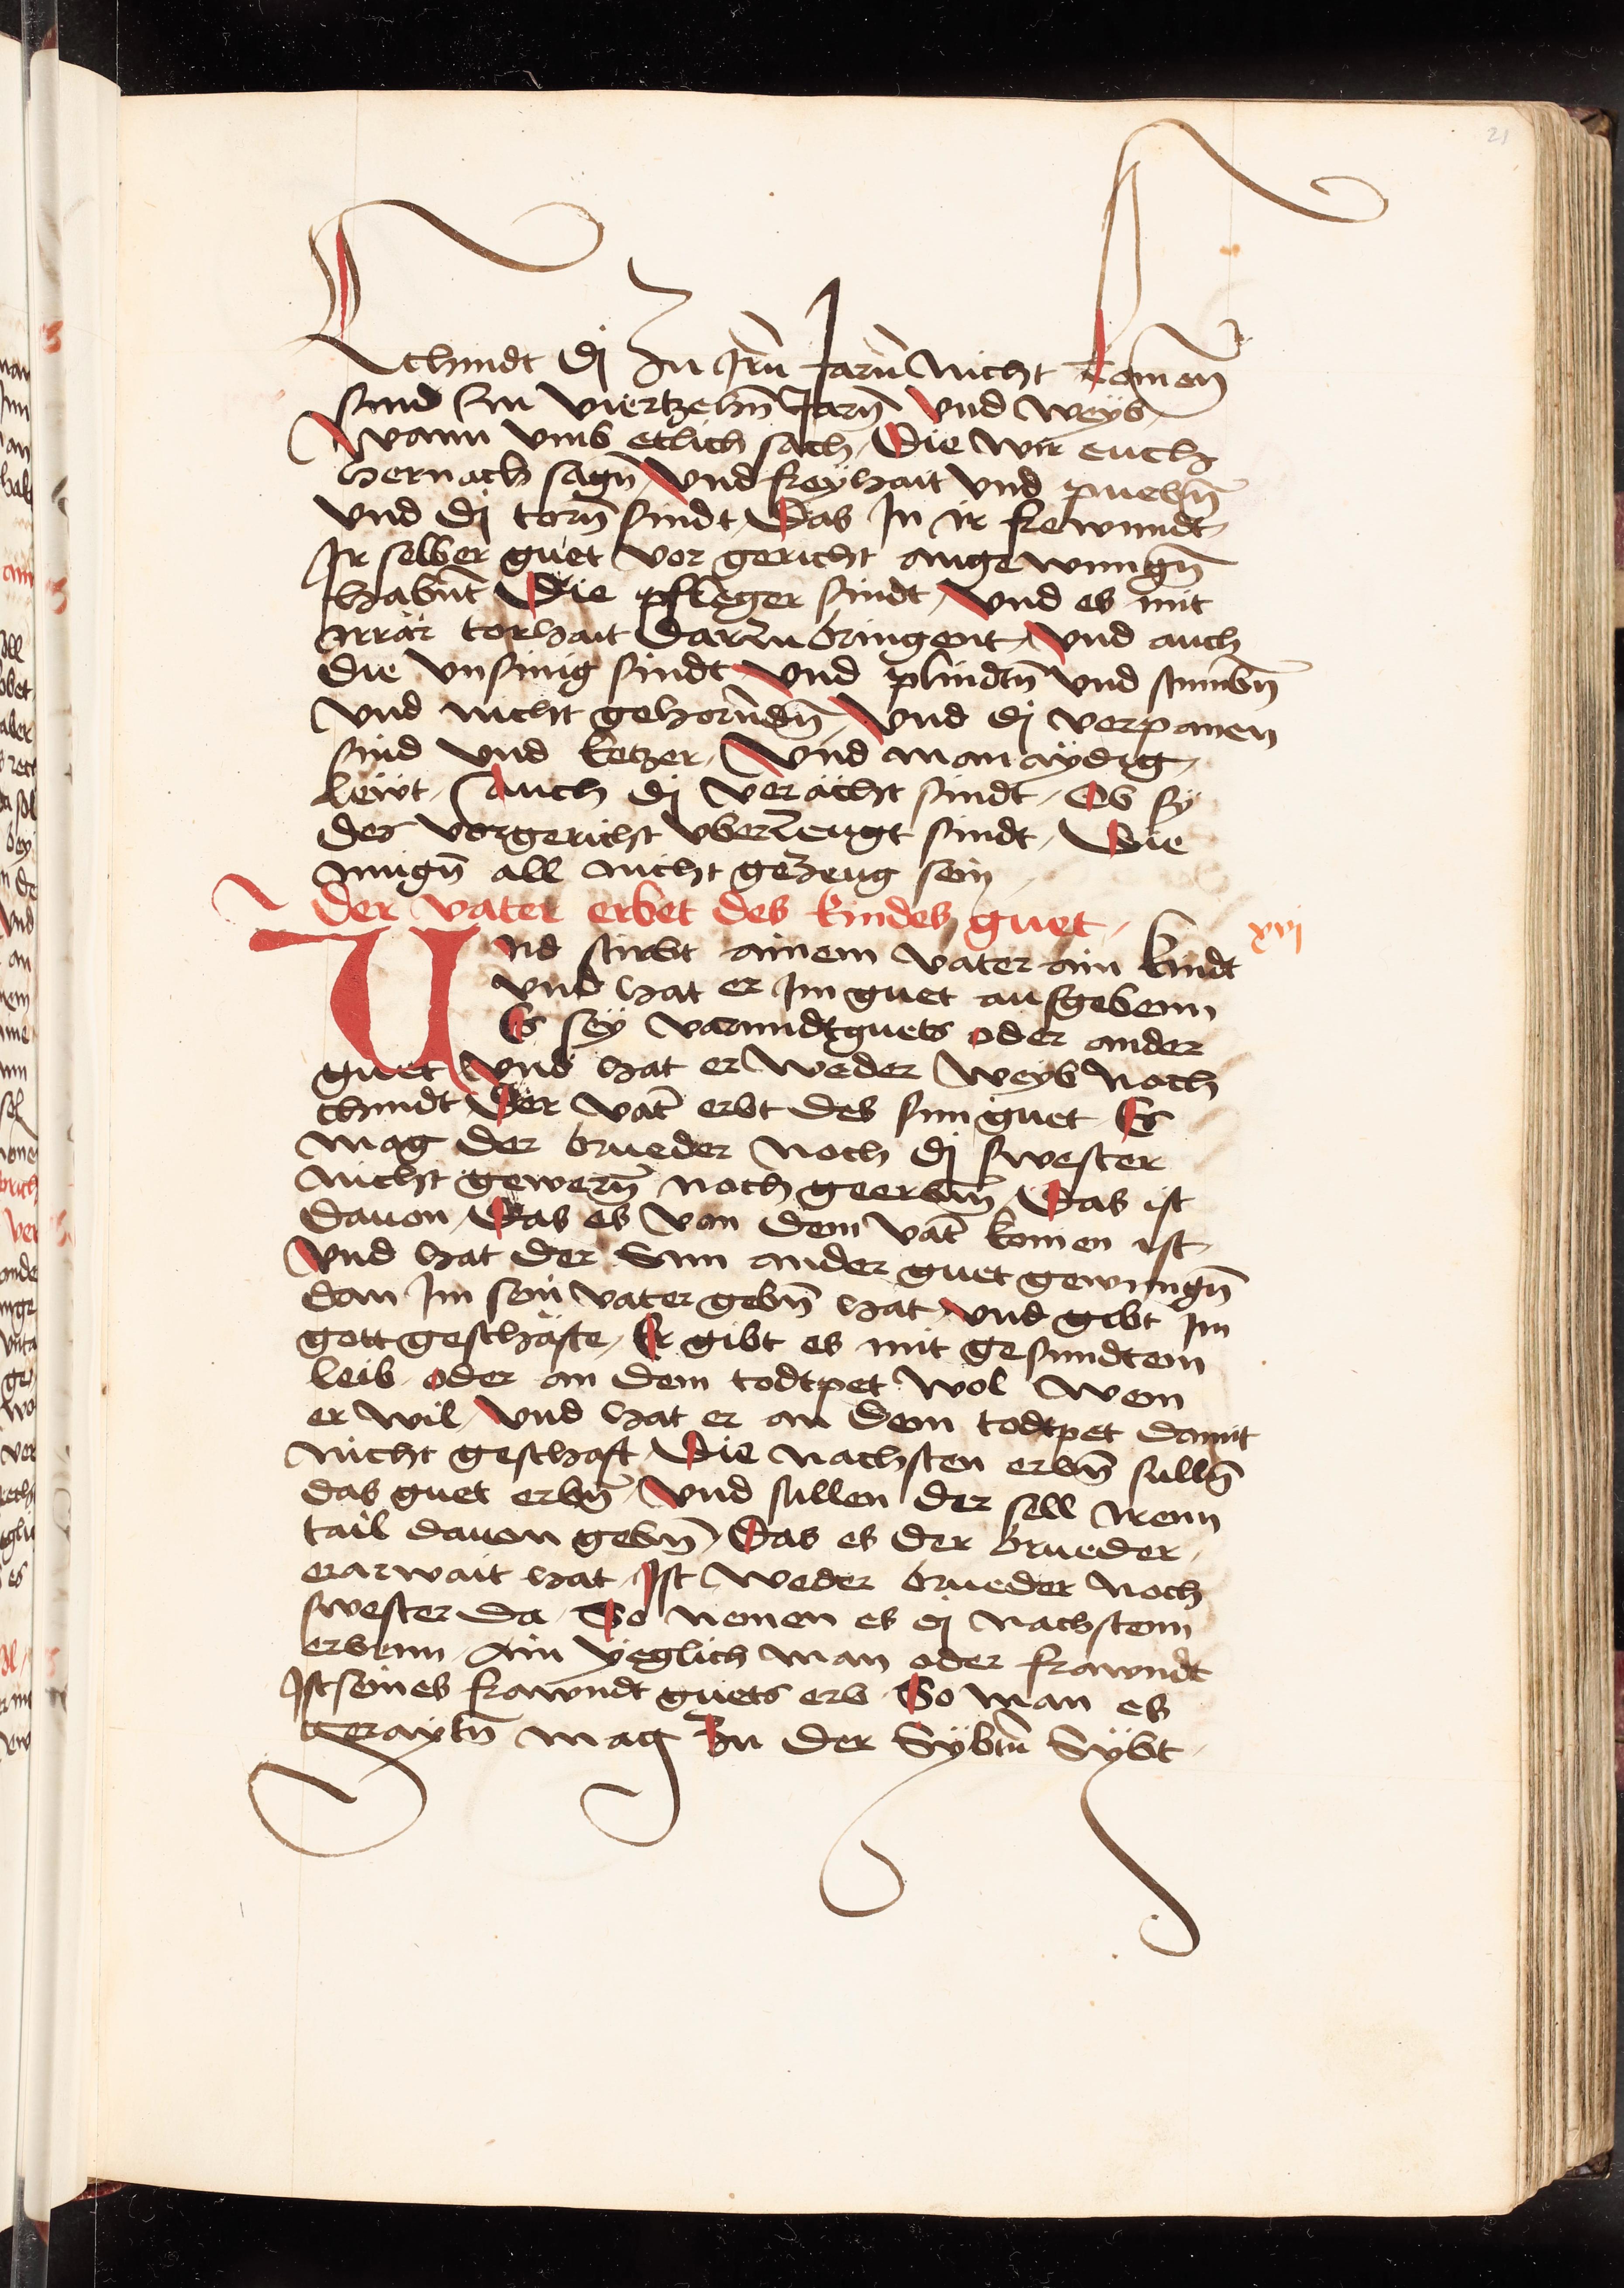 21
Chindt dj Zu Irn̄ Jarn̄ Nicht komen̄
sind Zw viertzehn̄ Jarn̄ vnd weyb
wann vmb etlich sach Die wir euch
hernach sagn̄ vnd freyhait vnd puebn̄
vnd dj torn̄ sindt Das In ir frewnndt
Ir selber guet vor gericht angewungn̄
habnt̄ Die pfleger sindt vnd es mit
irrär torhait darzu bringent vnd auch
die vnsinig sindt vnd plindtn̄ vnd stumbn̄
vnd nicht gehorndn̄ vnd dj verpanen
sind vnd ketzer vnd manaydig
lewt auch dj verächt sindt Ob sy
des vor gericht vberzeugt sindt Die
mugn̄ all nicht gezeug sein
Der vater erbet des kindes guet
xvj
Und stirbt ainem vater ain kindt
vnd hat er im guet ausgebenn
Es sey varnndtguets oder ander
guet vnd hat er weder weyb noch
chindt Der vat̄ erbt des sun guet Es
mag der brueder noch dj swester
nicht gewern̄ noch geerbm̄ Das ist
dauon Das es von dem vat̄ komen ist
vnd hat der Sun ander guet gewungn̄
dan im sein vater gebn̄ hat vnd gibt im
gott geschäfte Er gibt es mit gesundtem
leib oder an dem todtpet wol wem
er wil vnd hat er an dem todtpet damit
nicht geschaft Die nachsten erbn̄ sulln̄
das guet erbn̄ vnd sullen der sell irenn
tail dauon gebn̄ Das es der brueder
erarwait hat Ist weder brueder noch
swester da So nemen es dj nachstenn
erbenn Ain yeglich man oder frawndt
Ist seines frawndt guets erb So man es
geraytn̄ mag Zu der Sybtn̄ Sybt